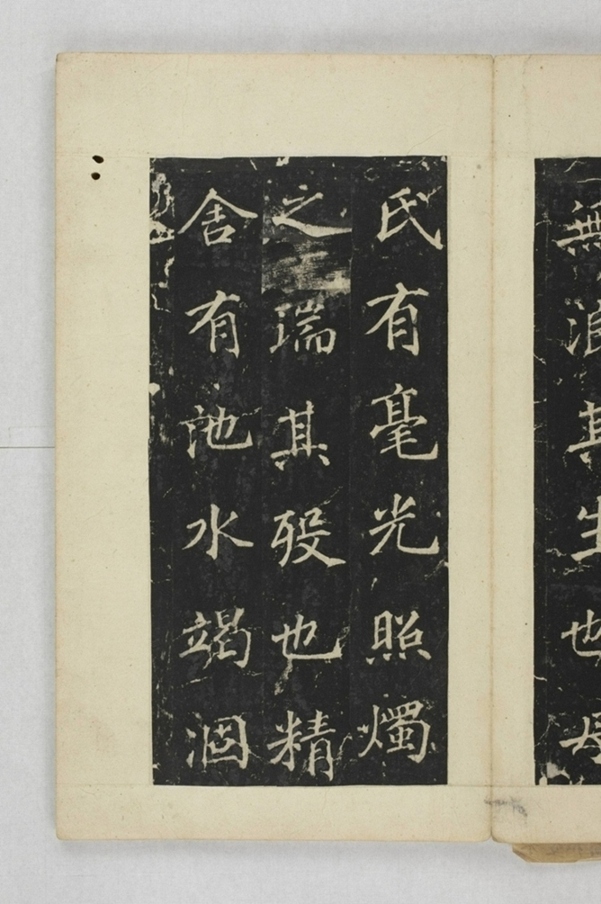 無浪其生也母
氏有毫光照燭
之瑞其歿也精
舍有池水竭涸